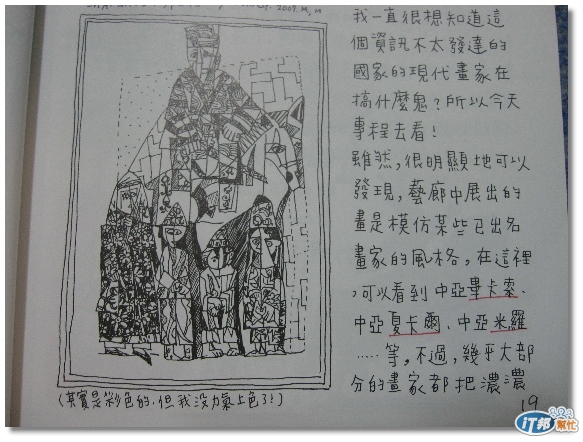 2009.
我一直很想知道這
個資訊不太發達的
國家的現代畫家在
搞什麼鬼？所以今天
專程去看！
雖然，很明顯地可以
發現，藝廊中展出的
畫是模仿某些已出名
畫家的風格，在這裡
，可以看到中亞畢卡索、
中亞夏卡爾、中亞米羅
‥‥‥等，不過，幾乎大部
分的畫家都把濃濃
（其實是彩色的，但我沒力氣上色了！）
19
iT邦幫忙